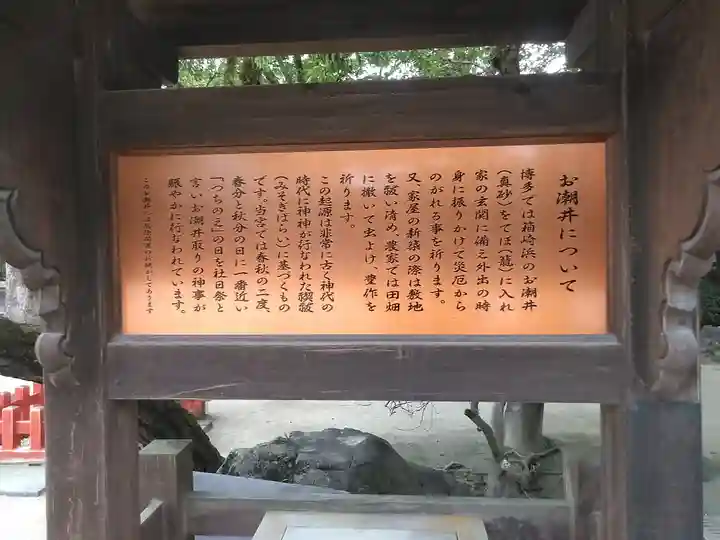 お潮井について
博多では箱崎浜のお潮井
(真砂)をてぼ(籠)に入れ
家の玄関に備え外出の時
身に振りかけて災厄から
のがれる事を祈ります。
又、家屋の新築の際は敷地
を祓い清め、農家では田畑
に撒いて虫よけ、豊作を
祈ります。
この起源は非常に古く神代の
時代に神神が行なわれた禊祓
(みそぎはらい)に基づくもの
です。当宮では春秋の二度、
春分と秋分の日に一番近い
「つちのえ」の日を社日祭と
言いお潮井取りの神事が
賑やかに行なわれています。
このお潮井